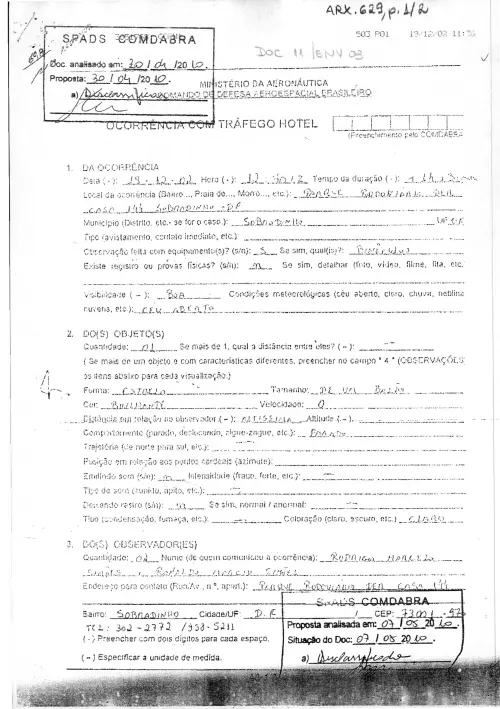 ARX. 629, p. 1/2
503 P01 19/12/02 11:36
SPADS COMDABRA
DOC 11/ENV 03
Doc. analisado em: 30/04/2010
Proposta: 30/04/2010
a) Desclassificado
MINISTÉRIO DA AERONÁUTICA
COMANDO DE DEFESA AEROESPACIAL BRASILEIRO
OCORRÊNCIA COM TRÁFEGO HOTEL
(Preenchimento pelo COMDABRA
1. DA OCORRÊNCIA
Data (-): 19-12-02 Hora (-): Tempo da duração (-):
Local da ocorrência (Bairro..., Praia do..., Morro..., etc.): PARQUE RODOVIÁRIO DER
CASA 144 SOBRADINHO-DF
Município (Distrito, etc.- se for o caso.): SOBRADINHO UF:
Tipo (avistamento, contato imediato, etc.):
Observação feita com equipamento(s)? (s/n): S Se sim, qual(is)?:
Existe registro ou provas físicas? (s/n): n Se sim, detalhar (foto, vídeo, filme, fita, etc.
Visibilidade ( – ): BOA Condições meteorológicas (céu aberto, claro, chuva, neblina
nuvens, etc.): CÉU ABERTO
2. DO(S) OBJETO(S)
Quantidade: 01 Se mais de 1, qual a distância entre eles? ( – ):
( Se mais de um objeto e com características diferentes, preencher no campo " 4 " (OBSERVAÇÕES)
os itens abaixo para cada visualização.)
Forma: ESTRELA Tamanho: DE UM BALÃO
Cor: BRILHANTE Velocidade: 0
Distância em relação ao observador ( – ): ALTÍSSIMA Altitude ( – ):
Comportamento (parado, deslocando, zigue-zague, etc.): PARADO
Trajetória (de norte para sul, etc.):
Posição em relação aos pontos cardeais (azimute):
Emitindo som (s/n): n Intensidade (fraco, forte, etc.): –
Tipo de som (zunido, apito, etc.): –
Deixando rastro (s/n): n Se sim, normal / anormal: –
Tipo (condensação, fumaça, etc.): – Coloração (claro, escuro, etc.) CLARO
3. DO(S) OBSERVADOR(ES)
Quantidade: 02 Nome (de quem comunicou a ocorrência): RODRIGO MARCELO
Endereço para contato (Rua/Av., nº, apart.): PARQUE RODOVIÁRIO DER CASA 144
SPADS COMDABRA
Bairro: SOBRADINHO Cidade/UF: D.F. CEP:
TEL: 302-2772 / 958-5211
Proposta analisada em: 07/05/2010
(-) Preencher com dois dígitos para cada espaço.
Situação do Doc: 07/05/2010
( – ) Especificar a unidade de medida.
a) Desclassificado